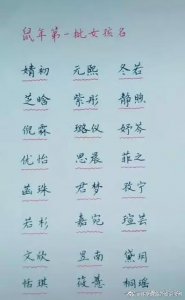 鼠年第一批女孩名
婧初 元熙 冬若
芝晗 紫彤 静煦
倪霖 璐仪 妤芬
优怡 思晨 菲之
菡珠 君梦 牧宁
若杉 嘉宛 瑄芸
文欣 昱南 黛玥
恬琪 筱薏 桐瑶